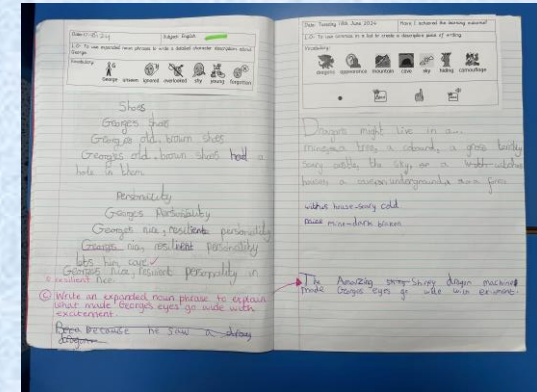 Subject: English
L.O: To use expanded noun phrases to write a detailed character description about
George.
Vocabulary
George unseen ignored overlooked shy young forgotten
Shoes
Georges Shoes
Georges old, brown shoes
Georges old, brown shoes had a
hole in them
Personality
Georges Personality
Georges nice, resilient personality
Georges nice, resilient personality
lets him care
Georges nice, resilient personality in
Write an expanded noun phrase to explain
what made George's eyes go wide with
excitement.
because he saw a shiny
dragon
Date: Tuesday 18th June 2024
Have I achieved the learning outcome?
L.O: To use commas in a list to create a descriptive piece of writing
Vocabulary
dragons appearance mountain cave sky hiding camouflage
Dragons might live in a...
trees, a
scary castle, the sky, or a
house, a underground, a farm
house-scary cold
mine-dark broken
The Amazing shiny dragon machine
made Georges eyes go wide with